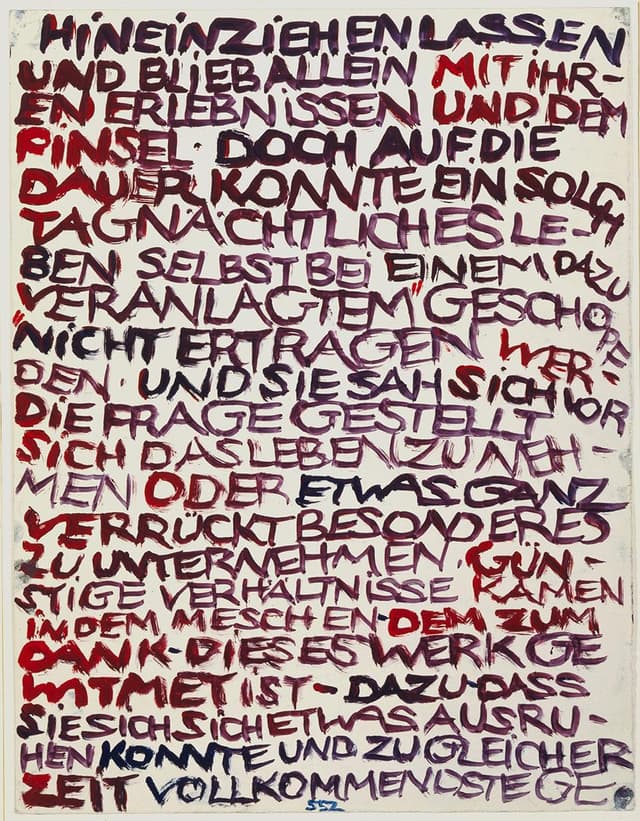 HINEINZIEHEN LASSEN
UND BLIEB ALLEIN MIT IHR-
EN ERLEBNISSEN UND DEM
PINSEL · DOCH AUF DIE
DAUER KONNTE EIN SOLCH
TAGNÄCHTLICHES LE-
BEN SELBST BEI EINEM DAZU
VERANLAGTEM" GESCHÖPF
"NICHT ERTRAGEN WER-
DEN · UND SIE SAH SICH VOR
DIE FRAGE GESTELLT
SICH DAS LEBEN ZU NEH-
MEN ODER ETWAS GANZ
VERRÜCKT BESONDERES
ZU UNTERNEHMEN · GÜN-
STIGE VERHÄLTNISSE KAMEN
IN DEM MESCHEN · DEM ZUM
DANK · DIESES WERK GE
WITMET IST · DAZU · DASS
SIE SICH SICH ETWAS AUSRU-
HEN KONNTE UND ZUGLEICHER
ZEIT VOLLKOMMENDSTE GE
552